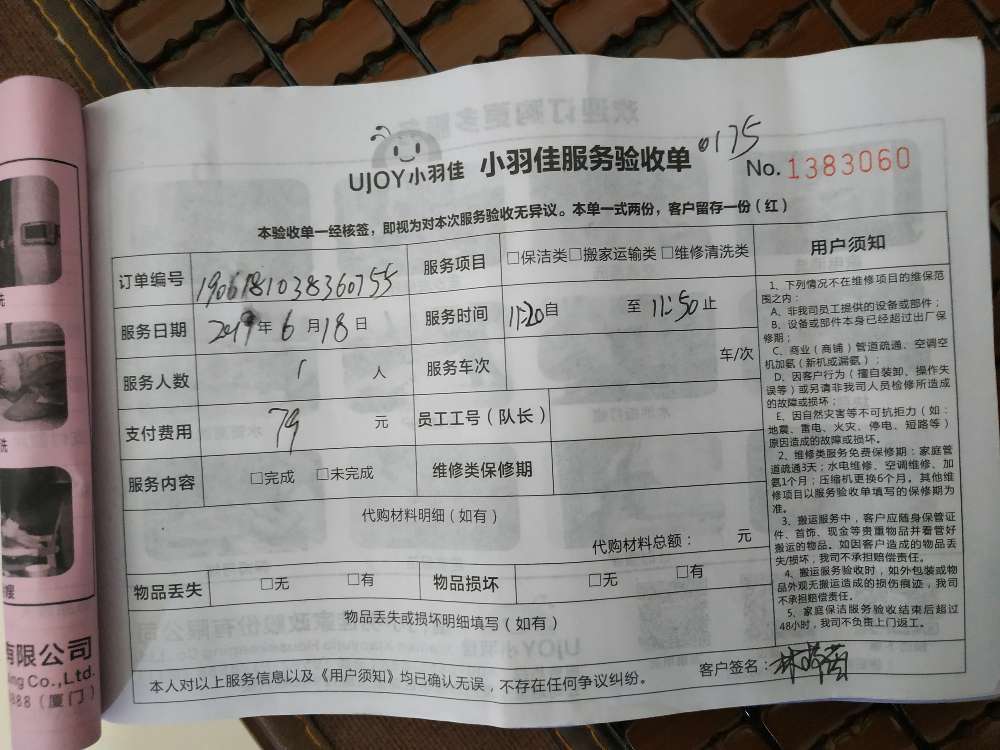 0175
UJOY小羽佳 小羽佳服务验收单
No. 1383060
本验收单一经核签，即视为对本次服务验收无异议。本单一式两份，客户留存一份（红）
订单编号 1906181038360755 服务项目 □保洁类□搬家运输类 □维修清洗类
服务日期 2019年 6 月 18 日 服务时间 11:20自 至 11:50 止
服务人数 1 人 服务车次 车/次
支付费用 79 元 员工工号（队长）
服务内容 □完成 □未完成 维修类保修期
代购材料明细（如有）
代购材料总额： 元
物品丢失 □无 □有 物品损坏 □无 □有
物品丢失或损坏明细填写（如有）
本人对以上服务信息以及《用户须知》均已确认无误，不存在任何争议纠纷。
客户签名：林
用户须知
1、下列情况不在维修项目的维保范
围之内：
A、非我司员工提供的设备或部件；
B、设备或部件本身已经超过出厂保
修期；
C、商业（商铺）管道疏通、空调空
机加氨（新机或漏氨）；
D、因客户行为（擅自装卸、操作失
误等）或另请非我司人员检修所造成
的故障或损坏；
E、因自然灾害等不可抗拒力（如：
地震、雷电、火灾、停电、短路等）
原因造成的故障或损坏。
2、维修类服务免费保修期：家庭管
道疏通3天；水电维修、空调维修、加
氨1个月；压缩机更换6个月。其他维
修项目以服务验收单填写的保修期为
准。
3、搬运服务中，客户应随身保管证
件、首饰、现金等贵重物品并看管好
搬运的物品。如因客户造成的物品丢
失/损坏，我司不承担赔偿责任。
4、搬运服务验收时，如外包装或物
品外观无搬运造成的损伤痕迹，我司
不承担赔偿责任。
5、家庭保洁服务验收结束后超过
48小时，我司不负责上门返工。
有限公司
ing Co.,Ltd.
888（厦门）